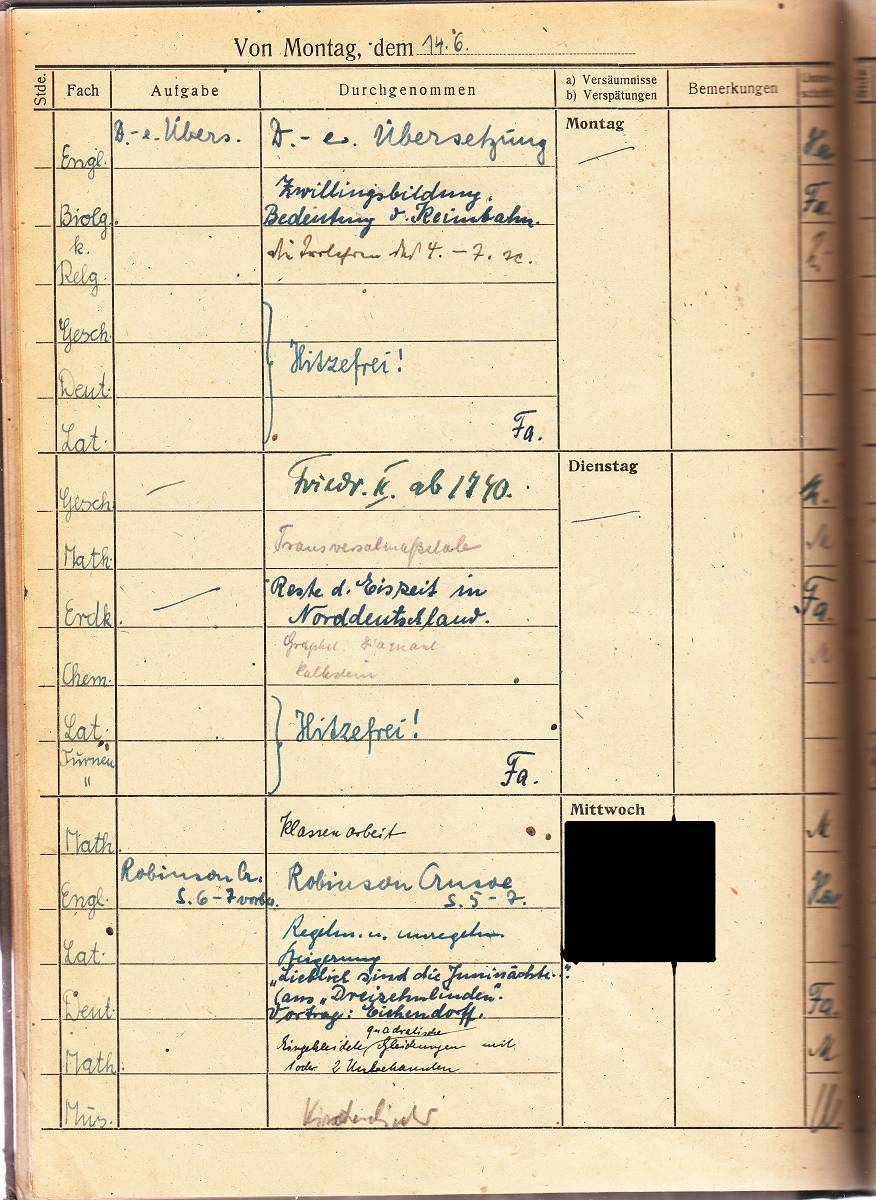 Von Montag, dem 14.6.
Stde. Fach Aufgabe Durchgenommen a) Versäumnisse b) Verspätungen Bemerkungen
Montag
Engl. D.-e. Übers. D. - e. Übersetzung
Zwillingsbildung.
Biolg. Bedeutung d. Keimbahn. Fa.
k.
Relg. 4. - 7.
Gesch.
Hitzefrei!
Deut.
Lat. Fa.
Dienstag
Gesch. Friedr. II. ab 1740.
Math. Transversalmaßstab
Reste d. Eiszeit in
Erdk. Norddeutschland. Fa.
Graphit Diamant
Chem. Kalkstein
Lat. Hitzefrei!
Turnen
" Fa.
Mittwoch
Math. Klassenarbeit M
Robinson Cr. Robinson Crusoe
Engl. S. 6-7 vorber. S. 5 - 7.
Regelm. u. unregelm.
Lat. Steigerung
"Lieblich sind die Juninächte..".
(aus "Dreizehnlinden".
Deut. Vortrag: Eichendorff. Fa.
quadratische
Eingekleidete Gleichungen mit
Math. 1 oder 2 Unbekannten M
Mus. Kirchenlieder